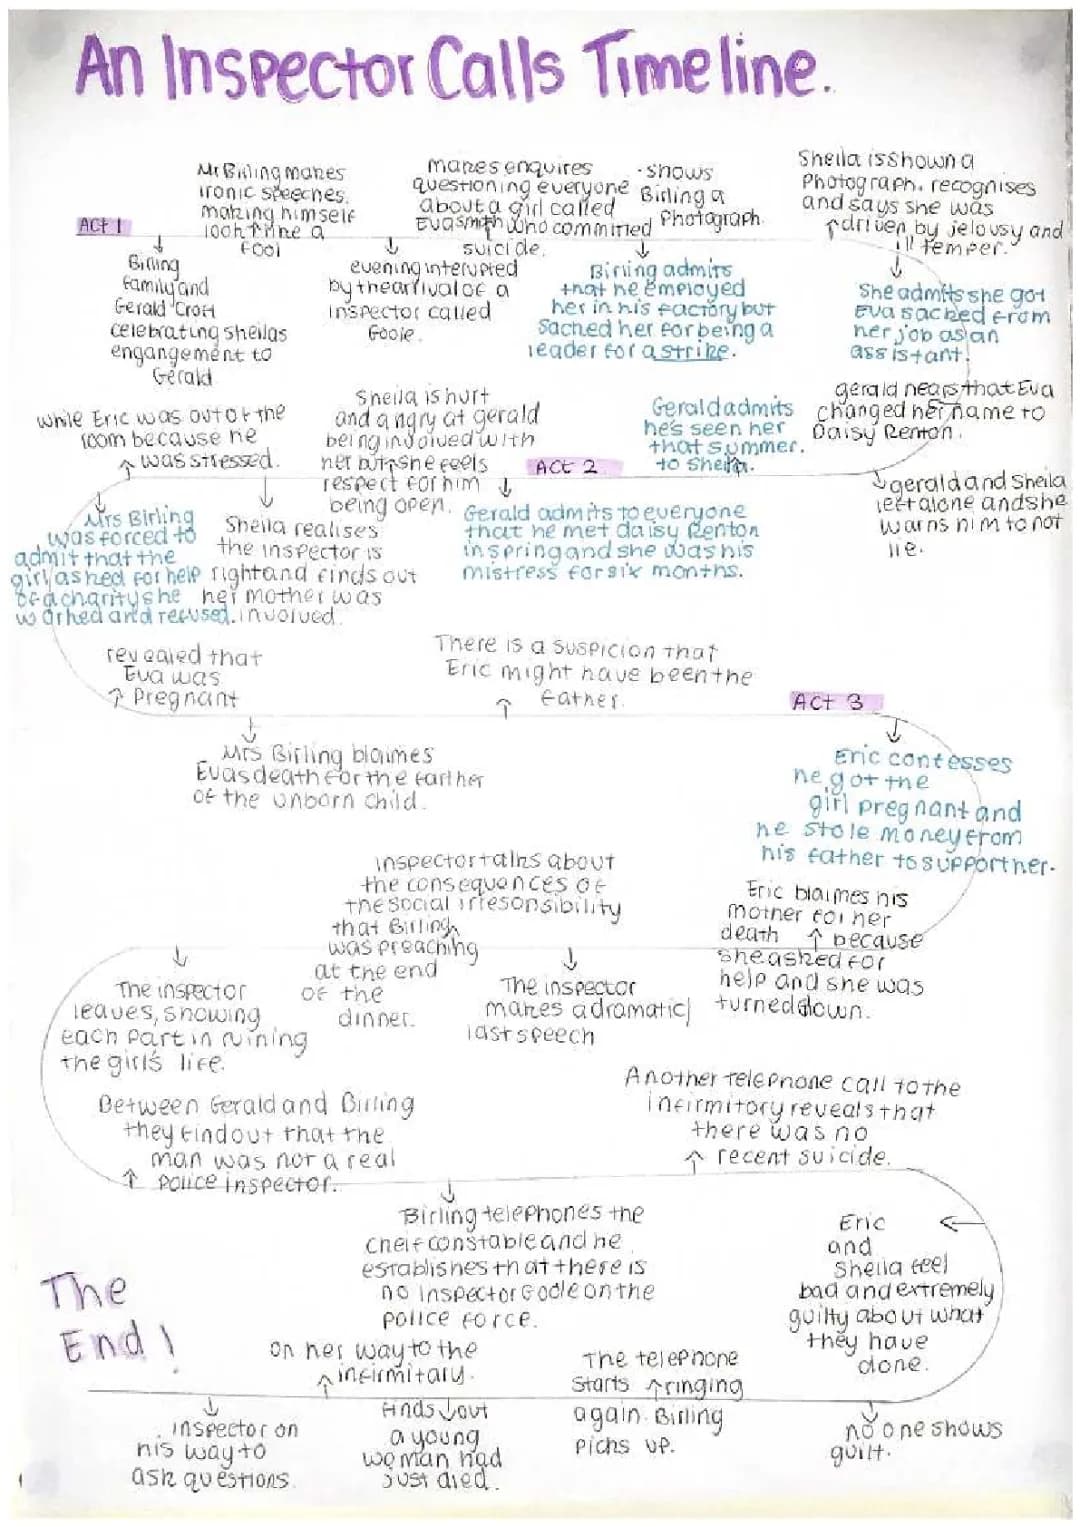 An Inspector Calls Timeline.
ACT 1
Birling
family and
Gerald Croft
celebrating sheilas
engangement to
Gerald
Mr Birling makes
ironic speeches.
making himself
look like a
fool
evening interupted
by the arrival of a
inspector called
Goole.
makes enquires
questioning everyone
about a girl called
Eva smith who commited
suicide.
- shows
Birling a
Photograph.
Birling admits
that he employed
her in his factory but
sacked her for being a
leader for a strike.
Sheila is shown a
Photograph. recognises
and says she was
driven by jelousy and
ill temper.
She admits she got
Eva sacked from
her job as an
assistant.
gerald hears that Eva
changed her name to
Daisy Renton.
gerald and Sheila
left alone and she
warns him to not
lie.
Gerald admits
he's seen her
that summer.
to Sheila.
ACT 2
Gerald admits to everyone
that he met daisy Renton
in spring and she was his
mistress for six months.
Sheila is hurt
and angry at gerald
being involved with
her but she feels
respect for him
being open.
Sheila realises
the inspector is
right and finds out
her mother was
involved.
while Eric was out of the
room because he
was stressed.
Mrs Birling
was forced to
admit that the
girl asked for help
of a charity she
worked and refused.
revealed that
Eva was
Pregnant
Mrs Birling blaimes
Evas death for the farther
of the unborn child.
There is a suspicion that
Eric might have been the
father.
ACT 3
Eric confesses
he got the
girl pregnant and
he stole money from
his father to support her.
Eric blaimes his
mother for her
death because
she asked for
help and she was
turned down.
The inspector
makes a dramatic
last speech
inspector talks about
the consequences of
the social irresonsibility
that Birling
was preaching
at the end
of the
dinner.
The inspector
leaves, showing
each part in ruining
the girl's life.
Between Gerald and Birling
they find out that the
man was not a real
police inspector.
Birling telephones the
cheif constable and he
establishes that there is
no inspector Goole on the
police force.
Another telephone call to the
infirmitory reveals that
there was no
recent suicide.
Eric
and
Sheila feel
bad and extremely
guilty about what
they have
done.
no one shows
guilt.
The telephone
starts ringing
again. Birling
picks up.
finds out
a young
woman had
just died.
on her way to the
infirmitary.
inspector on
his way to
ask questions.
The
End!